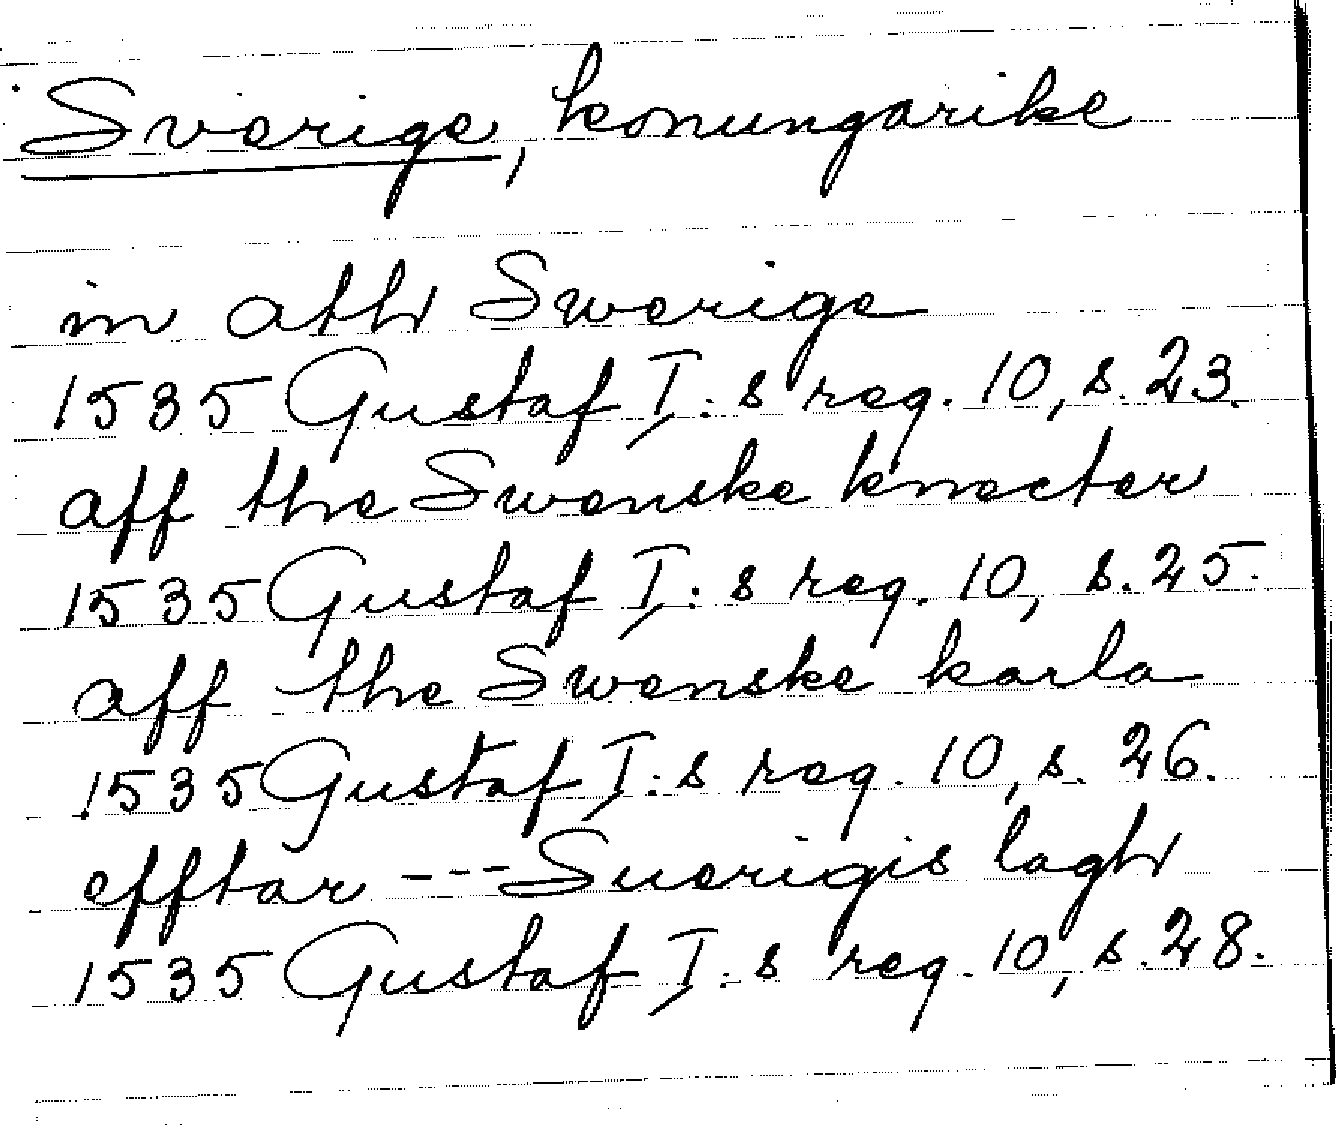 Sverige, konungarike
in ath Swerige
1535 Gustaf I:s reg. 10, s. 23.
aff the Swenske knecter
1535 Gustaf I:s reg. 10, s. 25.
aff the Swenske karla
1535 Gustaf I:s reg. 10, s. 26.
efftar --- Suerigis lagh
1535 Gustaf I:s reg. 10, s. 28.